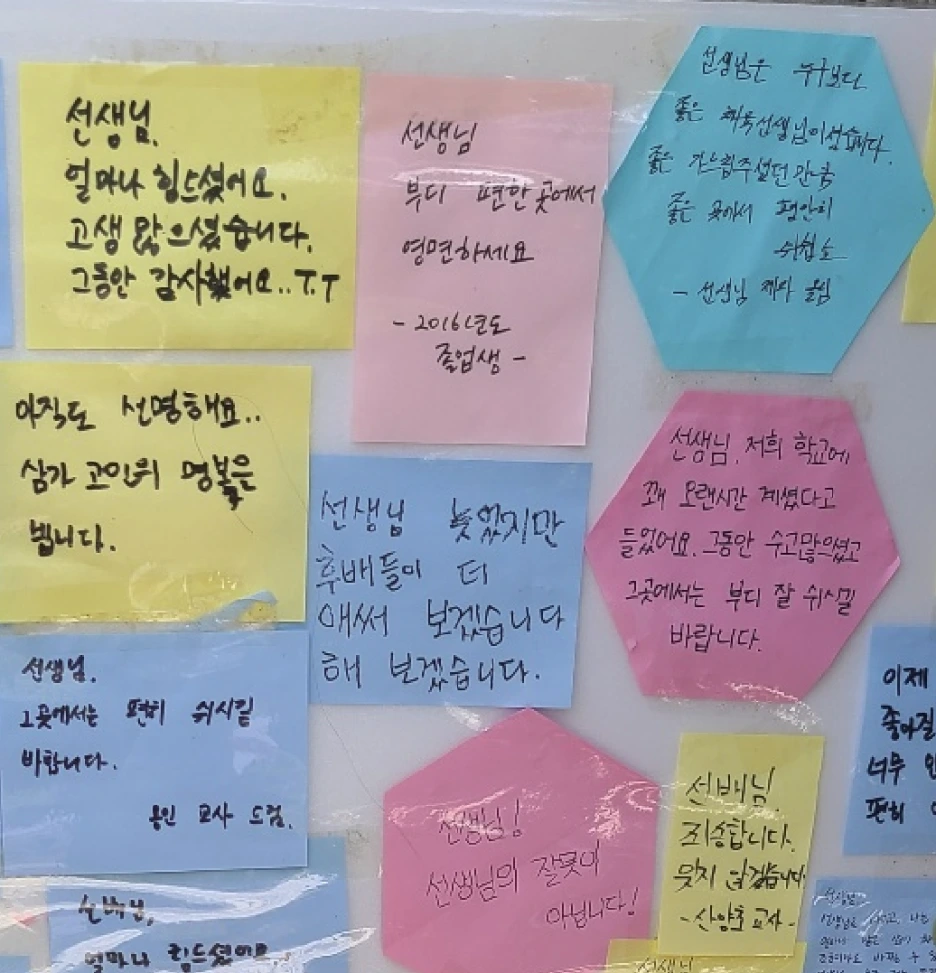 선생님.
얼마나 힘드셨어요.
고생 많으셨습니다.
그동안 감사했어요..T.T
선생님
부디 편한 곳에서
영면하세요
- 2016년도
졸업생 -
선생님은 누구보다
좋은 체육선생님이셨습니다.
좋은 가르침주셨던 만큼
좋은 곳에서 편안히
쉬십쇼
- 선생님 제자 올림
아직도 선명해요..
삼가 고인의 명복을
빕니다.
선생님 늦었지만
후배들이 더
애써 보겠습니다
해 보겠습니다.
선생님. 저희 학교에
꽤 오랜시간 계셨다고
들었어요. 그동안 수고많으셨고
그곳에서는 부디 잘 쉬시길
바랍니다.
선생님.
그곳에서는 편히 쉬시길
바랍니다.
용인 교사 드림.
선생님!
선생님의 잘못이
아닙니다!
선배님.
죄송합니다.
잊지 않겠습니다
- 산양초 교사 -
이제
좋아질
너무
편히
선배님,
얼마나 힘드셨어요..
선생님
선생님